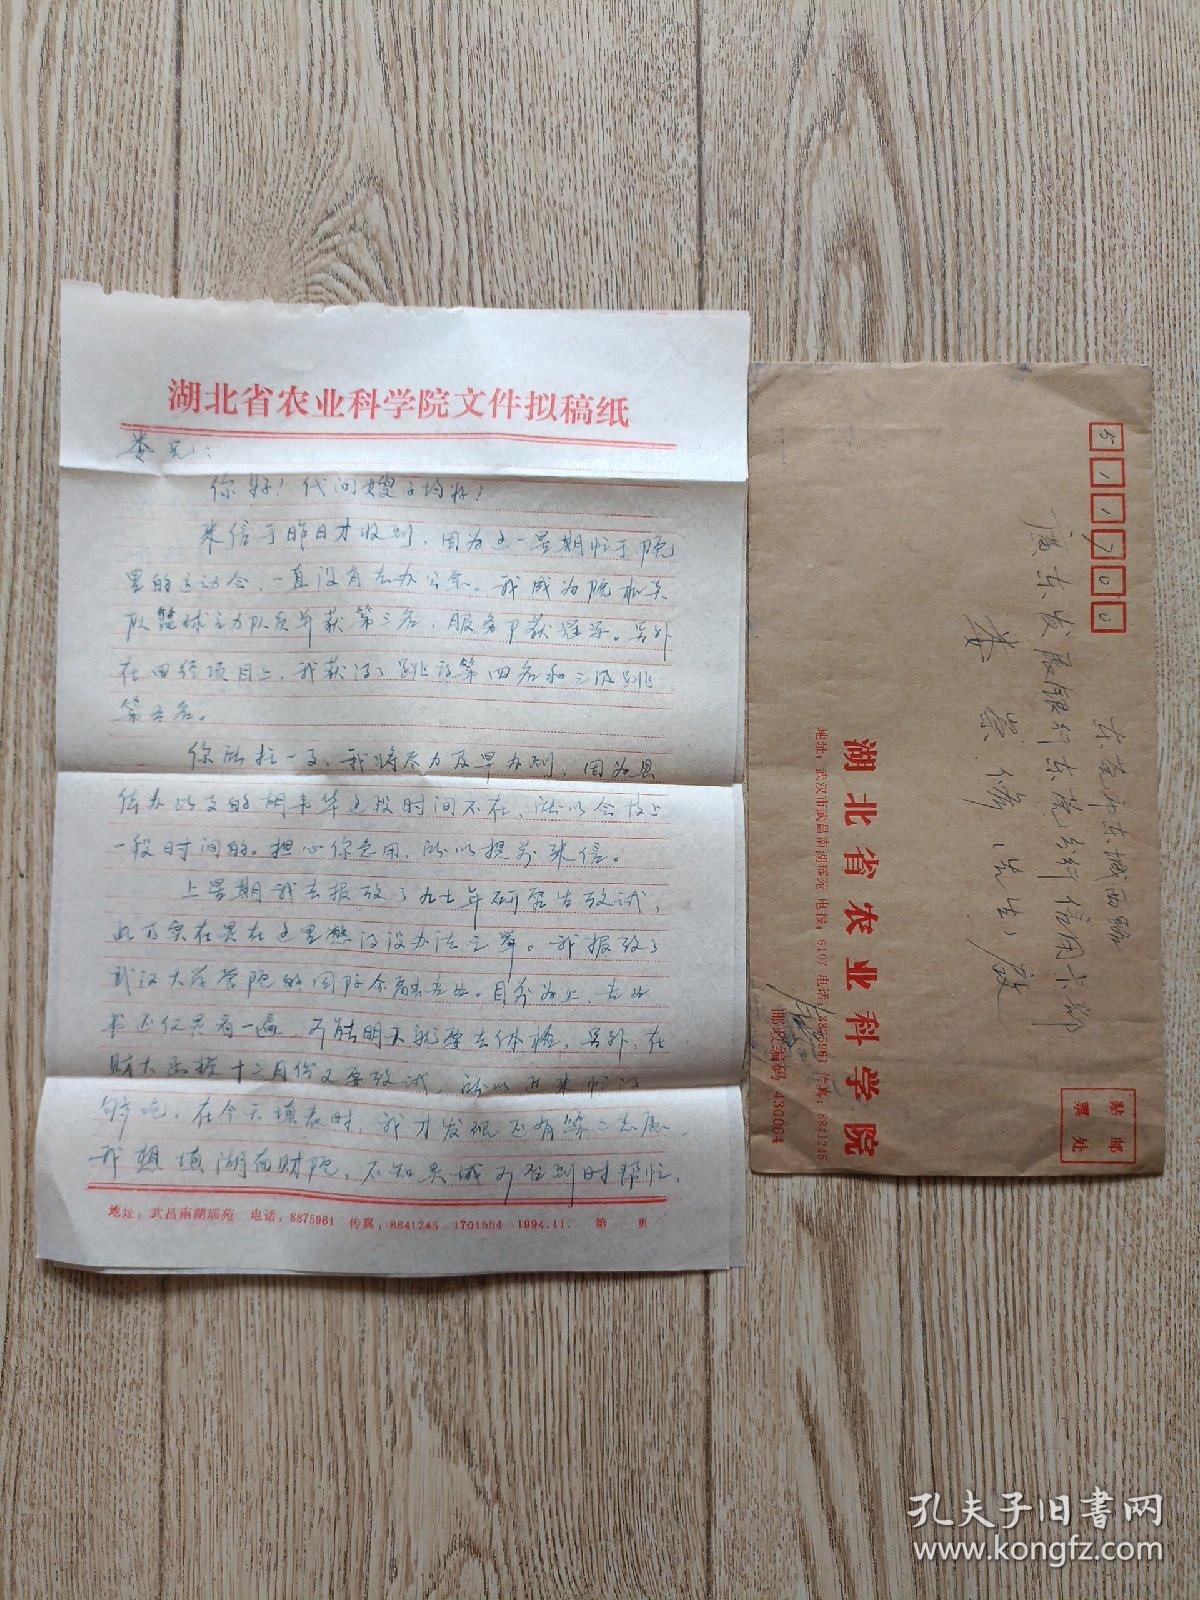 湖北省农业科学院文件拟稿纸
娄兄：
你好！代问嫂子均好！
来信于昨日才收到，因为这一星期忙于院
里的运动会，一直没有去办公室。我成为院机关
队篮球主力队员并获第三名，服务中获冠军。另外
在田径项目上，我获得了跳高第四名和三级跳
第五名。
你所托一事，我将尽力及早办到，因为具
体办此文的胡韦华这段时间不在，所以会拖上
一段时间的。担心你急用，所以提前来信。
上星期我去报考了九七年研究生考试，
此乃实在是在这里憋得没办法之举。我报考了
武汉大学管院的国际金融专业。目前为止，专业
书还仅是看一遍，可能明天就要去体检，另外，在
财大函授十二月份又要考试，所以近来忙得
够呛。在今天填表时，我才发现还有第二志愿，
我想填湖南财院，不知吴城可否到时帮忙，
地址：武昌南湖瑶苑 电话：8875961 传真：8841245 1701554 1994.11. 第 页
511700
东莞市东城西路
广东发展银行东莞分行信用卡部
娄崇 先生 启
湖北省农业科学院
地址：武汉市武昌南湖瑶苑 电报：6107 电话：8875961 传真：8841245
邮政编码 430064
贴邮
票处
孔夫子旧書网
www.kongfz.com